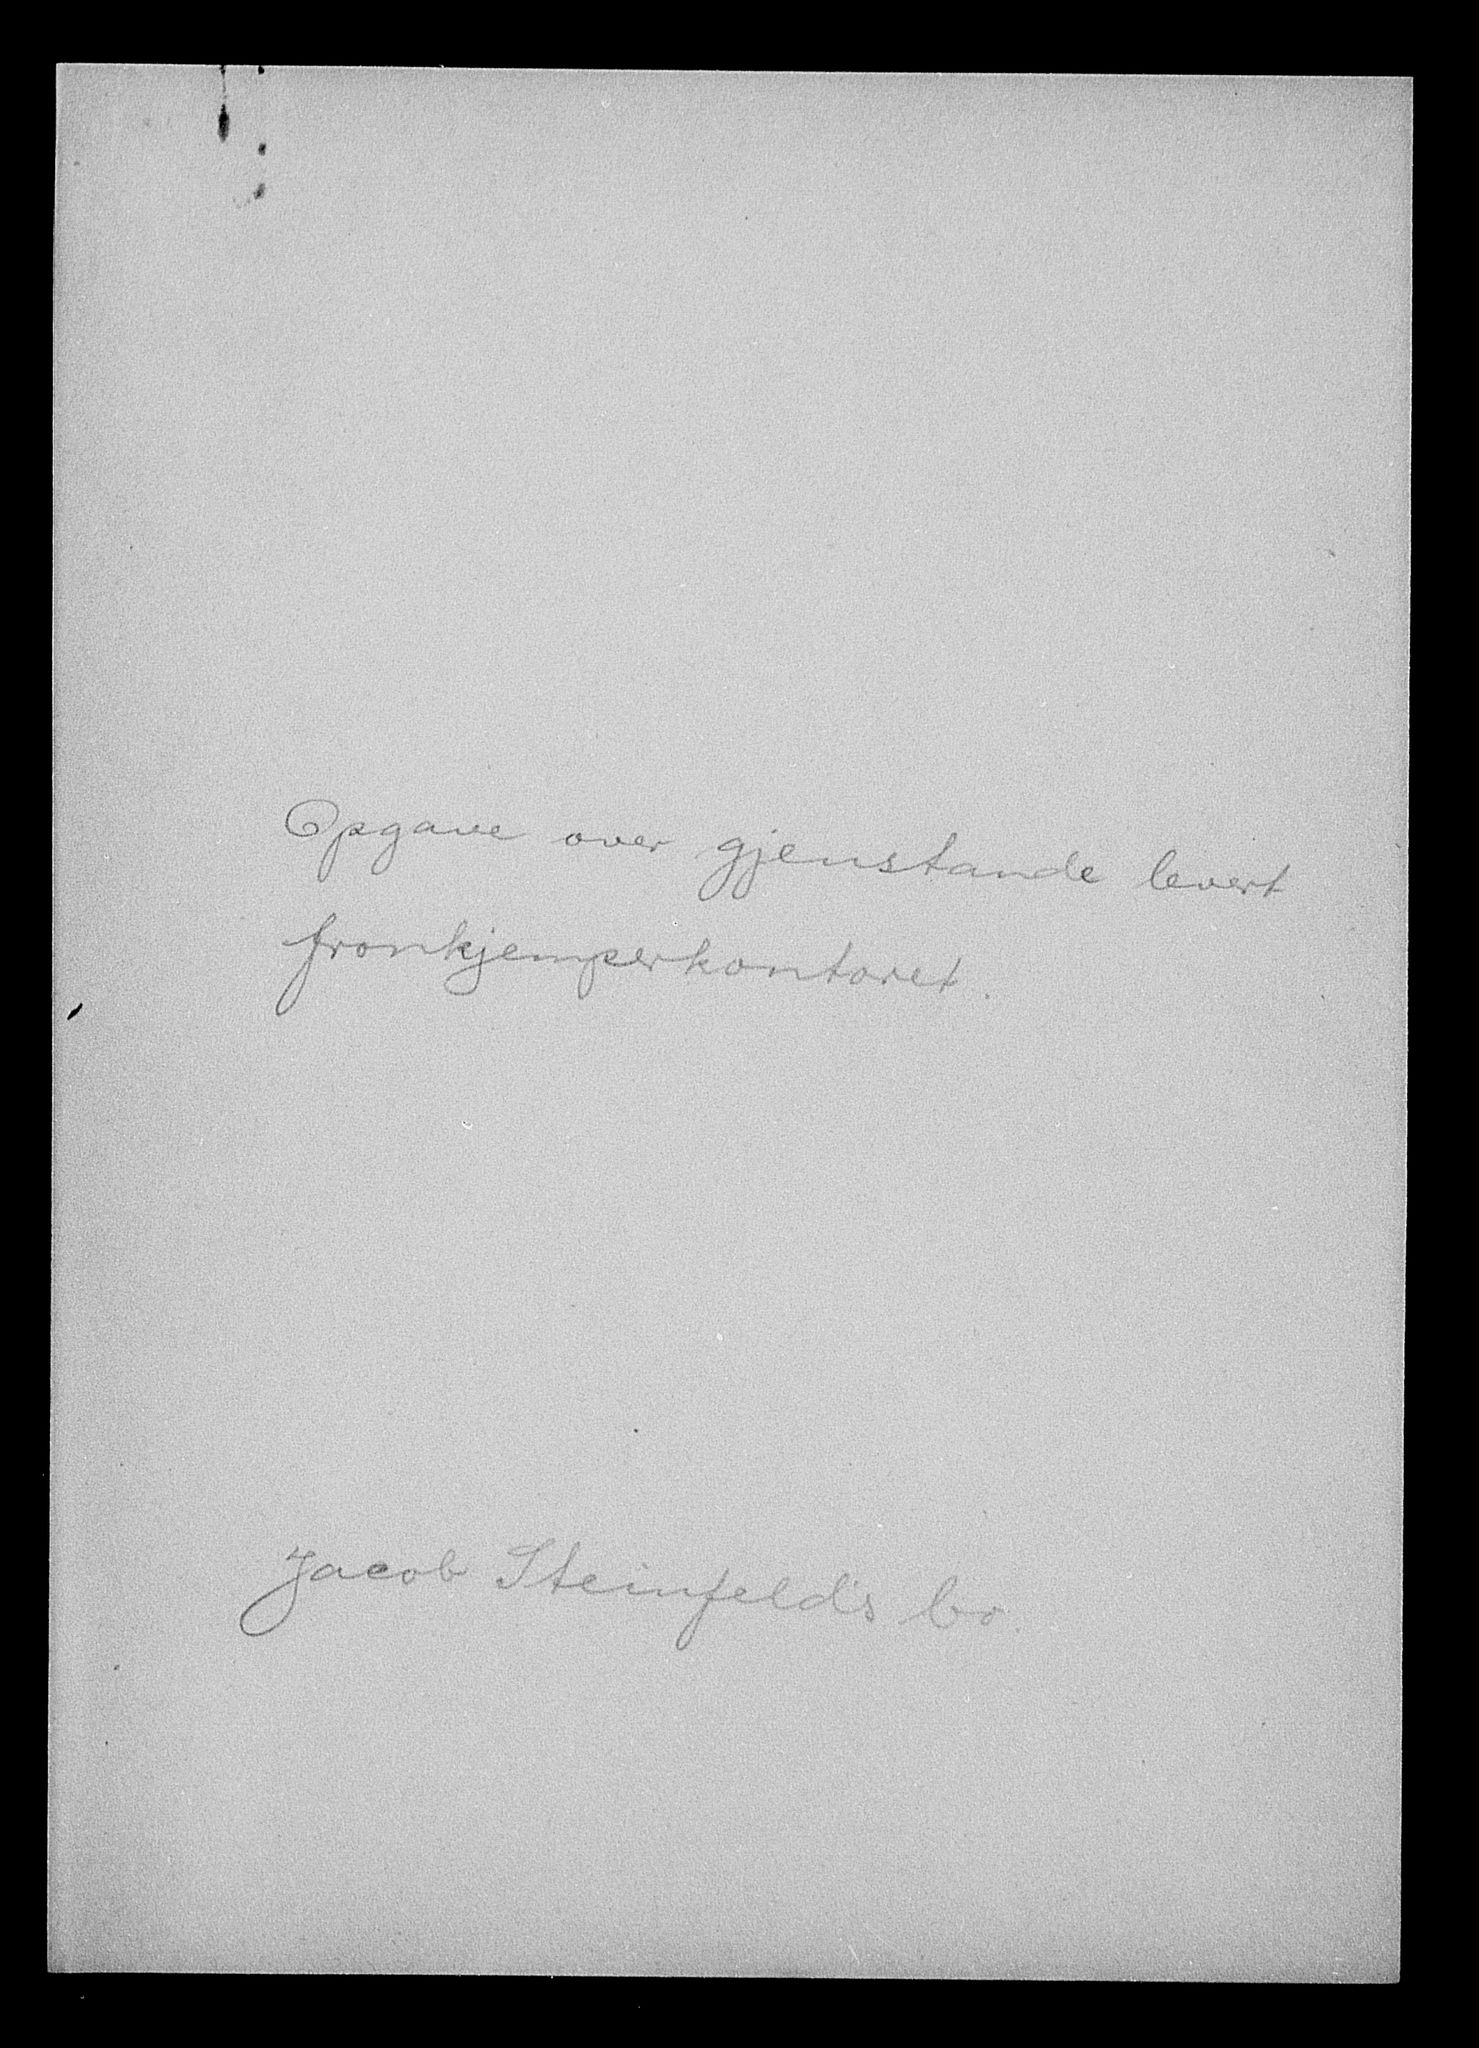 Opgave over gjenstande levert
fronkjemperkontoret.
Jacob Steinfeld's bo.